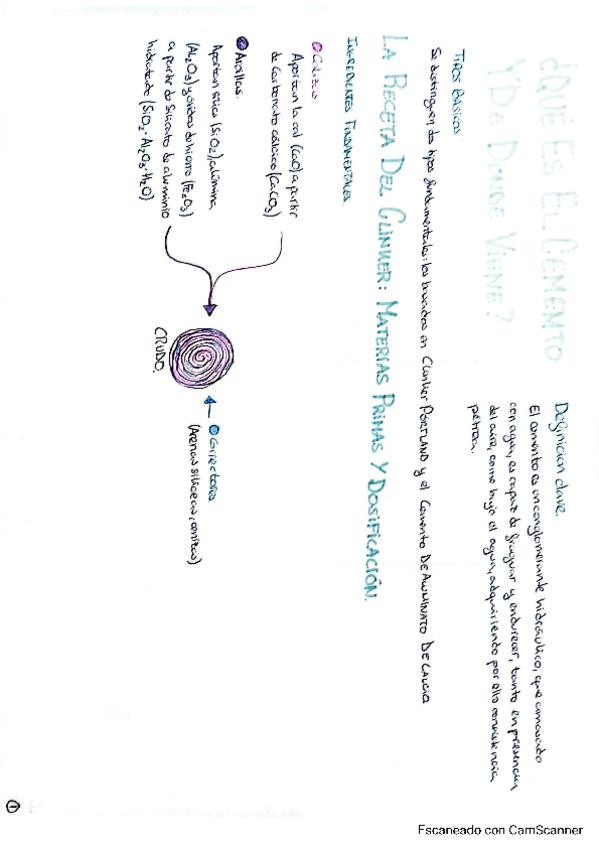 ¿QUÉ ES EL CEMENTO
Y DE DONDE VIENE?
Definición clave.
El cemento es un conglomerante hidráulico, que amasado
con agua, es capaz de fraguar y endurecer, tanto en presencia
del aire, como bajo el agua, adquiriendo por ello consistencia
pétrea.
TIPOS BÁSICOS
Se distinguen dos tipos fundamentales: los basados en Clinker PÓRTLAND y el Cemento DE ALUMINATO DE CALCIO
LA RECETA DEL CLINKER: MATERIAS PRIMAS Y DOSIFICACIÓN.
INGREDIENTES FUNDAMENTALES.
① Calizas
Aportan la cal (CaO) a partir
de carbonato cálcico (CaCO3)
② Arcillas.
Aportan sílice (SiO2), alúmina
(Al2O3) y óxidos de hierro (Fe2O3)
a partir de silicato de aluminio
hidratado (SiO2·Al2O3·H2O)
CRUDO.
③ Correctores
(Arenas silíceas, cenizas)
①
Escaneado con CamScanner